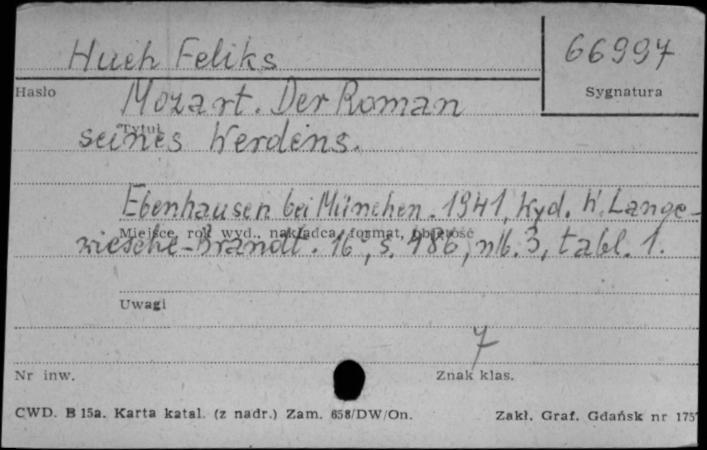 Huch Feliks
66997
Hasło
Sygnatura
Mozart. Der Roman
Tytuł
seines Werdens.
Ebenhausen bei München. 1941, Wyd. W. Lange-
Miejsce, rok wyd., nakładca, format, objętość
wiesche-Brandt. 16°, s. 486, nlb. 3, tabl. 1.
Uwagi
7
Nr inw.
Znak klas.
CWD. B 15a. Karta katal. (z nadr.) Zam. 658/DW/On.
Zakł. Graf. Gdańsk nr 175